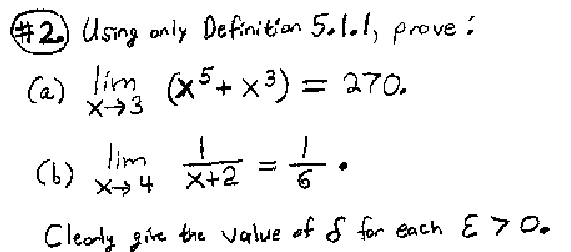 #2. Using only Definition 5.1.1, prove:
(a) lim x→3 (x⁵ + x³) = 270.
(b) lim x→4 1/(x+2) = 1/6.
Clearly give the value of δ for each ε > 0.